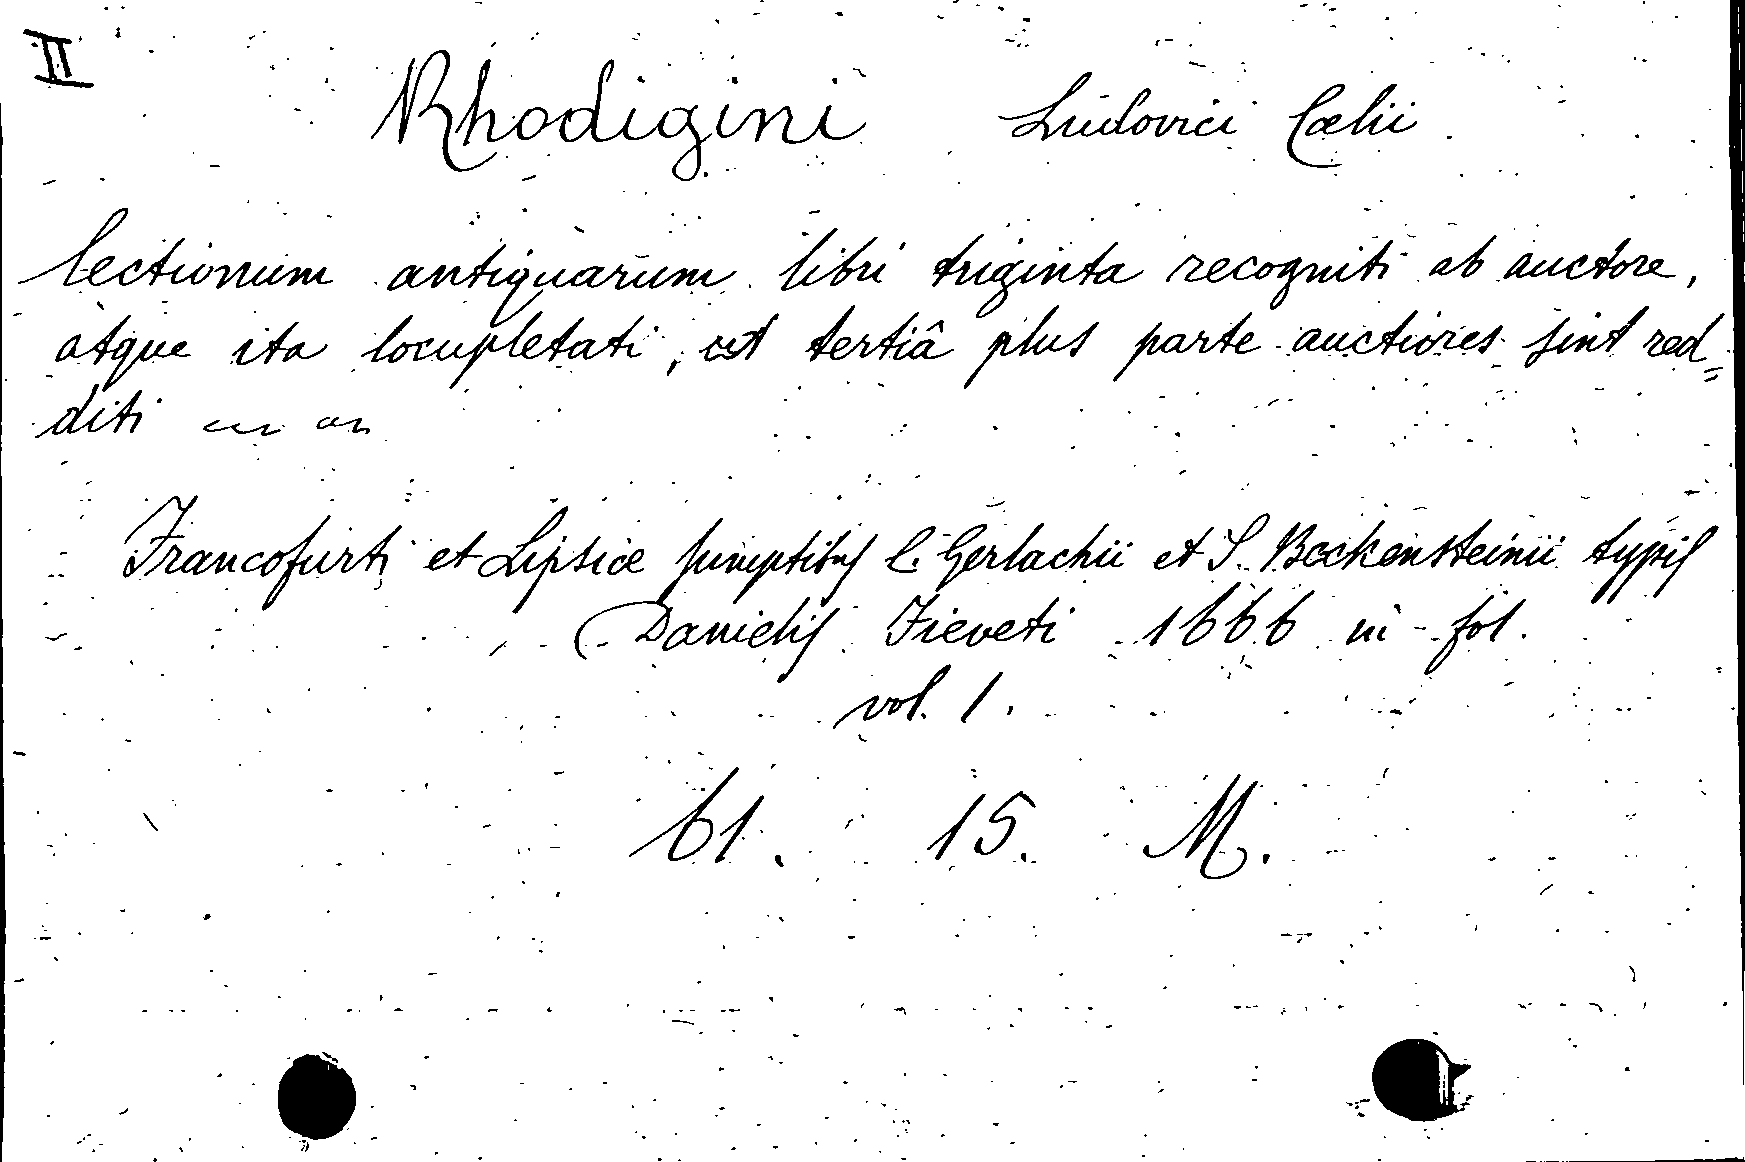 II
Rhodigini Ludovici Cælii
lectionum antiquarum libri triginta recogniti ab auctore,
atque ita locupletati, ut tertiâ plus parte auctiores sint red=
diti
Francofurti et Lipsiæ sumptibus C. Gerlachii et S. Beckensteinii typis
Danielis Fieveti 1666 in-fol.
vol. 1.
61. 15. M.